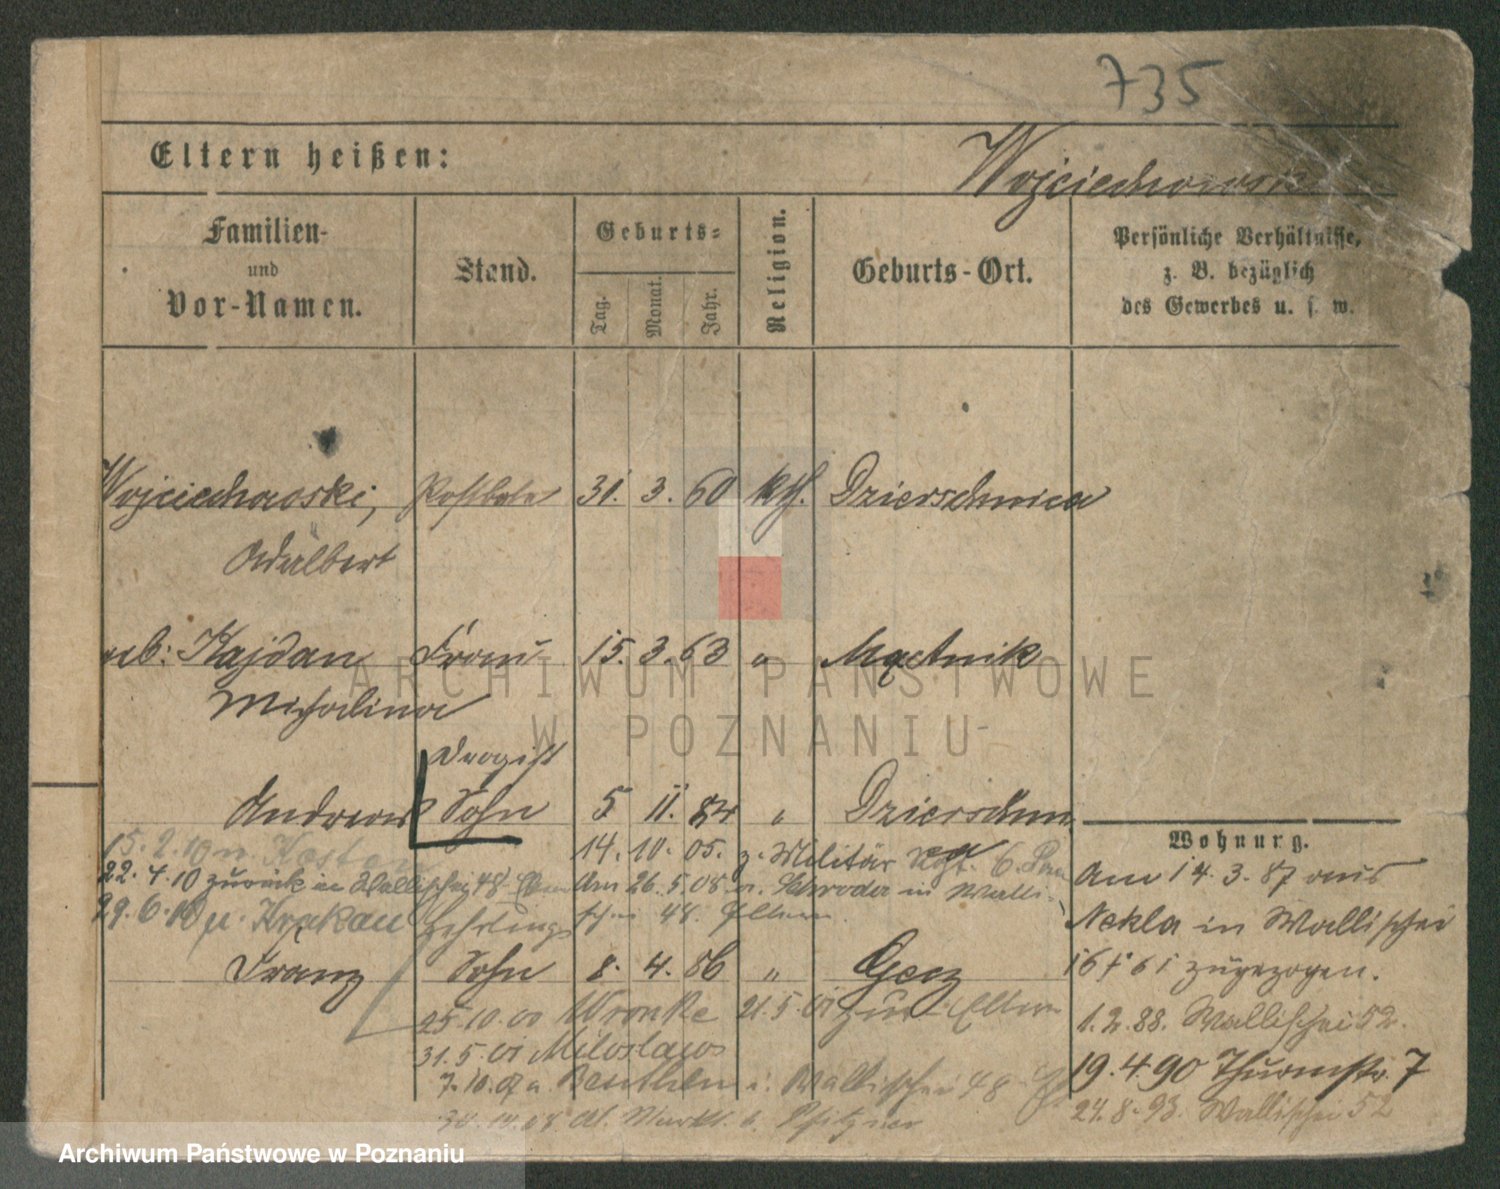 735
Eltern heißen:
Wojciechowski
Familien- und Vor-Namen.
Stand.
Geburts-
Tag.
Monat.
Jahr.
Religion.
Geburts-Ort.
Persönliche Verhältnisse,
z. B. bezüglich
des Gewerbes u. s. w.
Wojciechowski, Postbote 31. 3. 60 kth. Dzierschnica
Adalbert
geb: Kajdan Frau 15. 3. 63 " Mącznik
Michalina
ARCHIWUM PAŃSTWOWE
W POZNANIU
Drogist
Andreas Sohn 5 11. 84 " Dzierschn
15. 2. 10 n. Kosten
14. 10. 05. z. Militär Rgt. 6.
22. 4. 10 zurück in Wallischei 48 Am 26. 5. 08 v. Schroda in Walli-
29. 6. 10 n. Krakau Lehrling schei 48. Eltern
Franz Sohn 8. 4. 86 " Giecz
25. 10. 00 Wronke 21. 5. 01 zur Eltern
31. 5. 01 Miloslaw
7. 10. 07 v. Beuthen i. Wallischei 48
Pfitzner
Wohnung.
Am 14. 3. 87 aus
Nekla in Wallischei
zugezogen.
1. 2. 88. Wallischei 52.
19. 4. 90 Thurmstr. 7
24. 8. 93. Wallischei 52
Archiwum Państwowe w Poznaniu